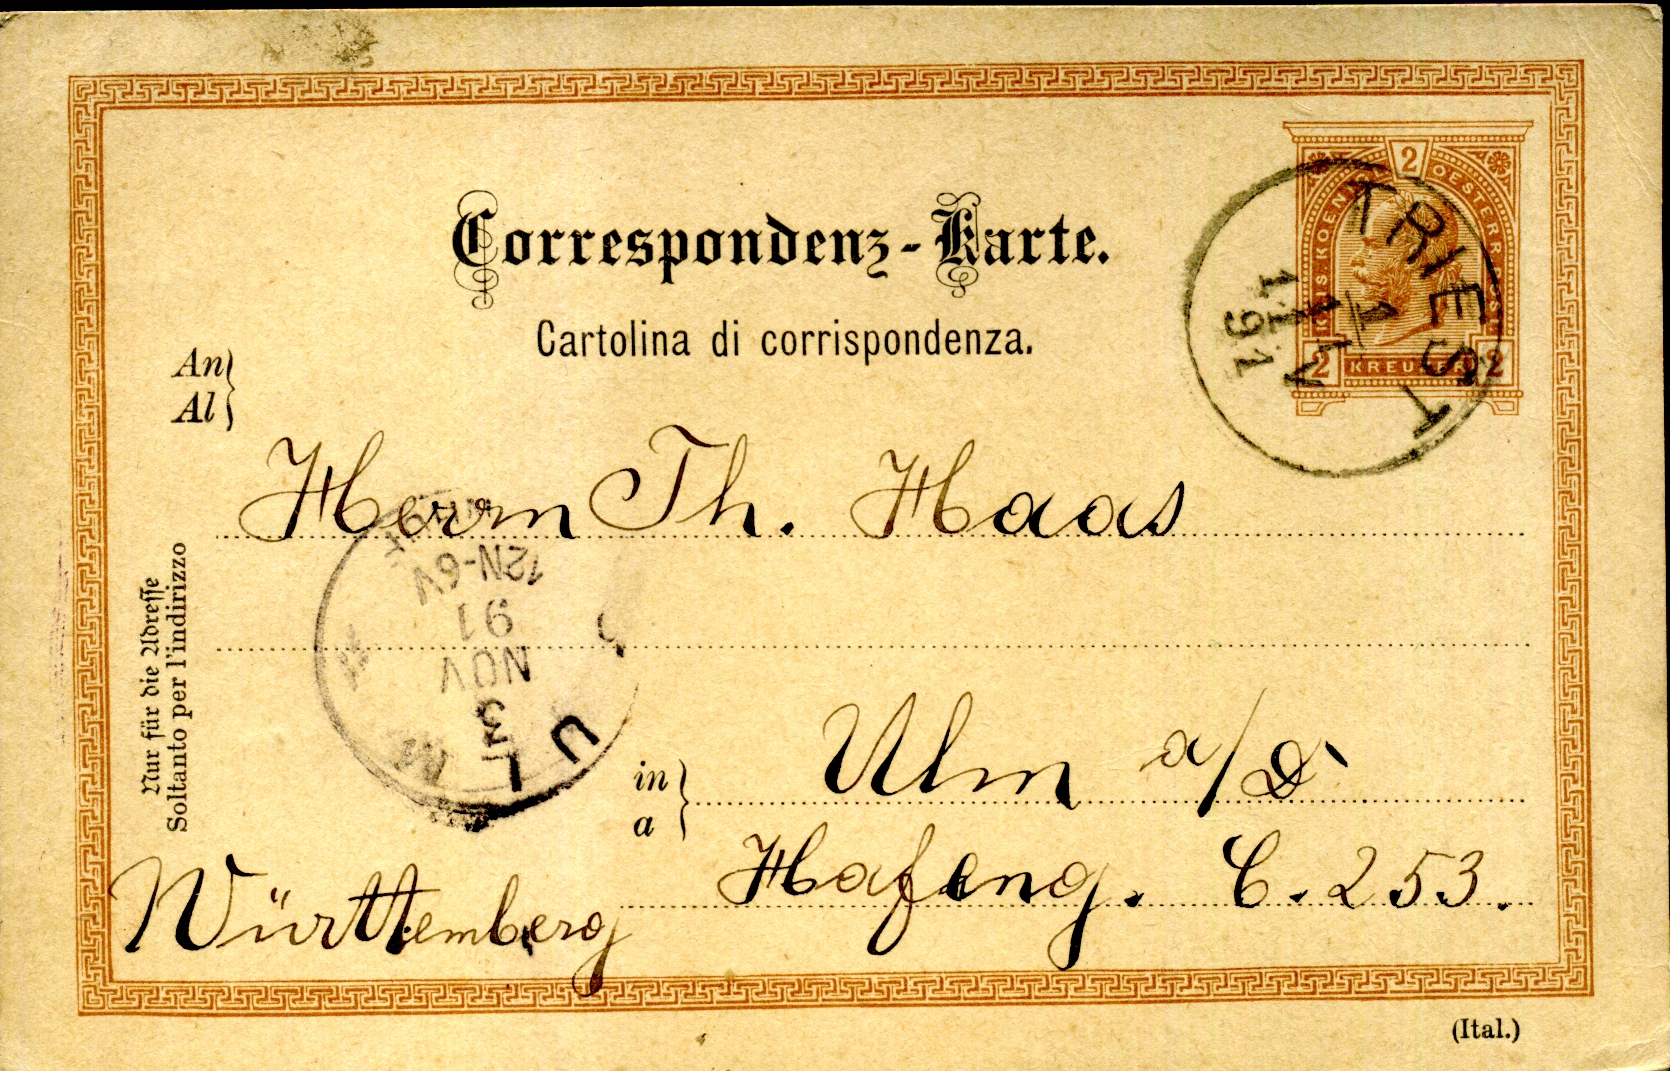 Correspondenz-Karte.
Cartolina di corrispondenza.
2
KAIS. KOEN. OESTERR.
2 KREUZER 2
TRIEST
1
11
91
An
Al
Herrn Th. Haas
Nur für die Adresse
Soltanto per l'indirizzo
12N-6V
91
NOV
3
ULM
in
a
Ulm a/D
Hafeng. C. 253.
Württemberg
(Ital.)